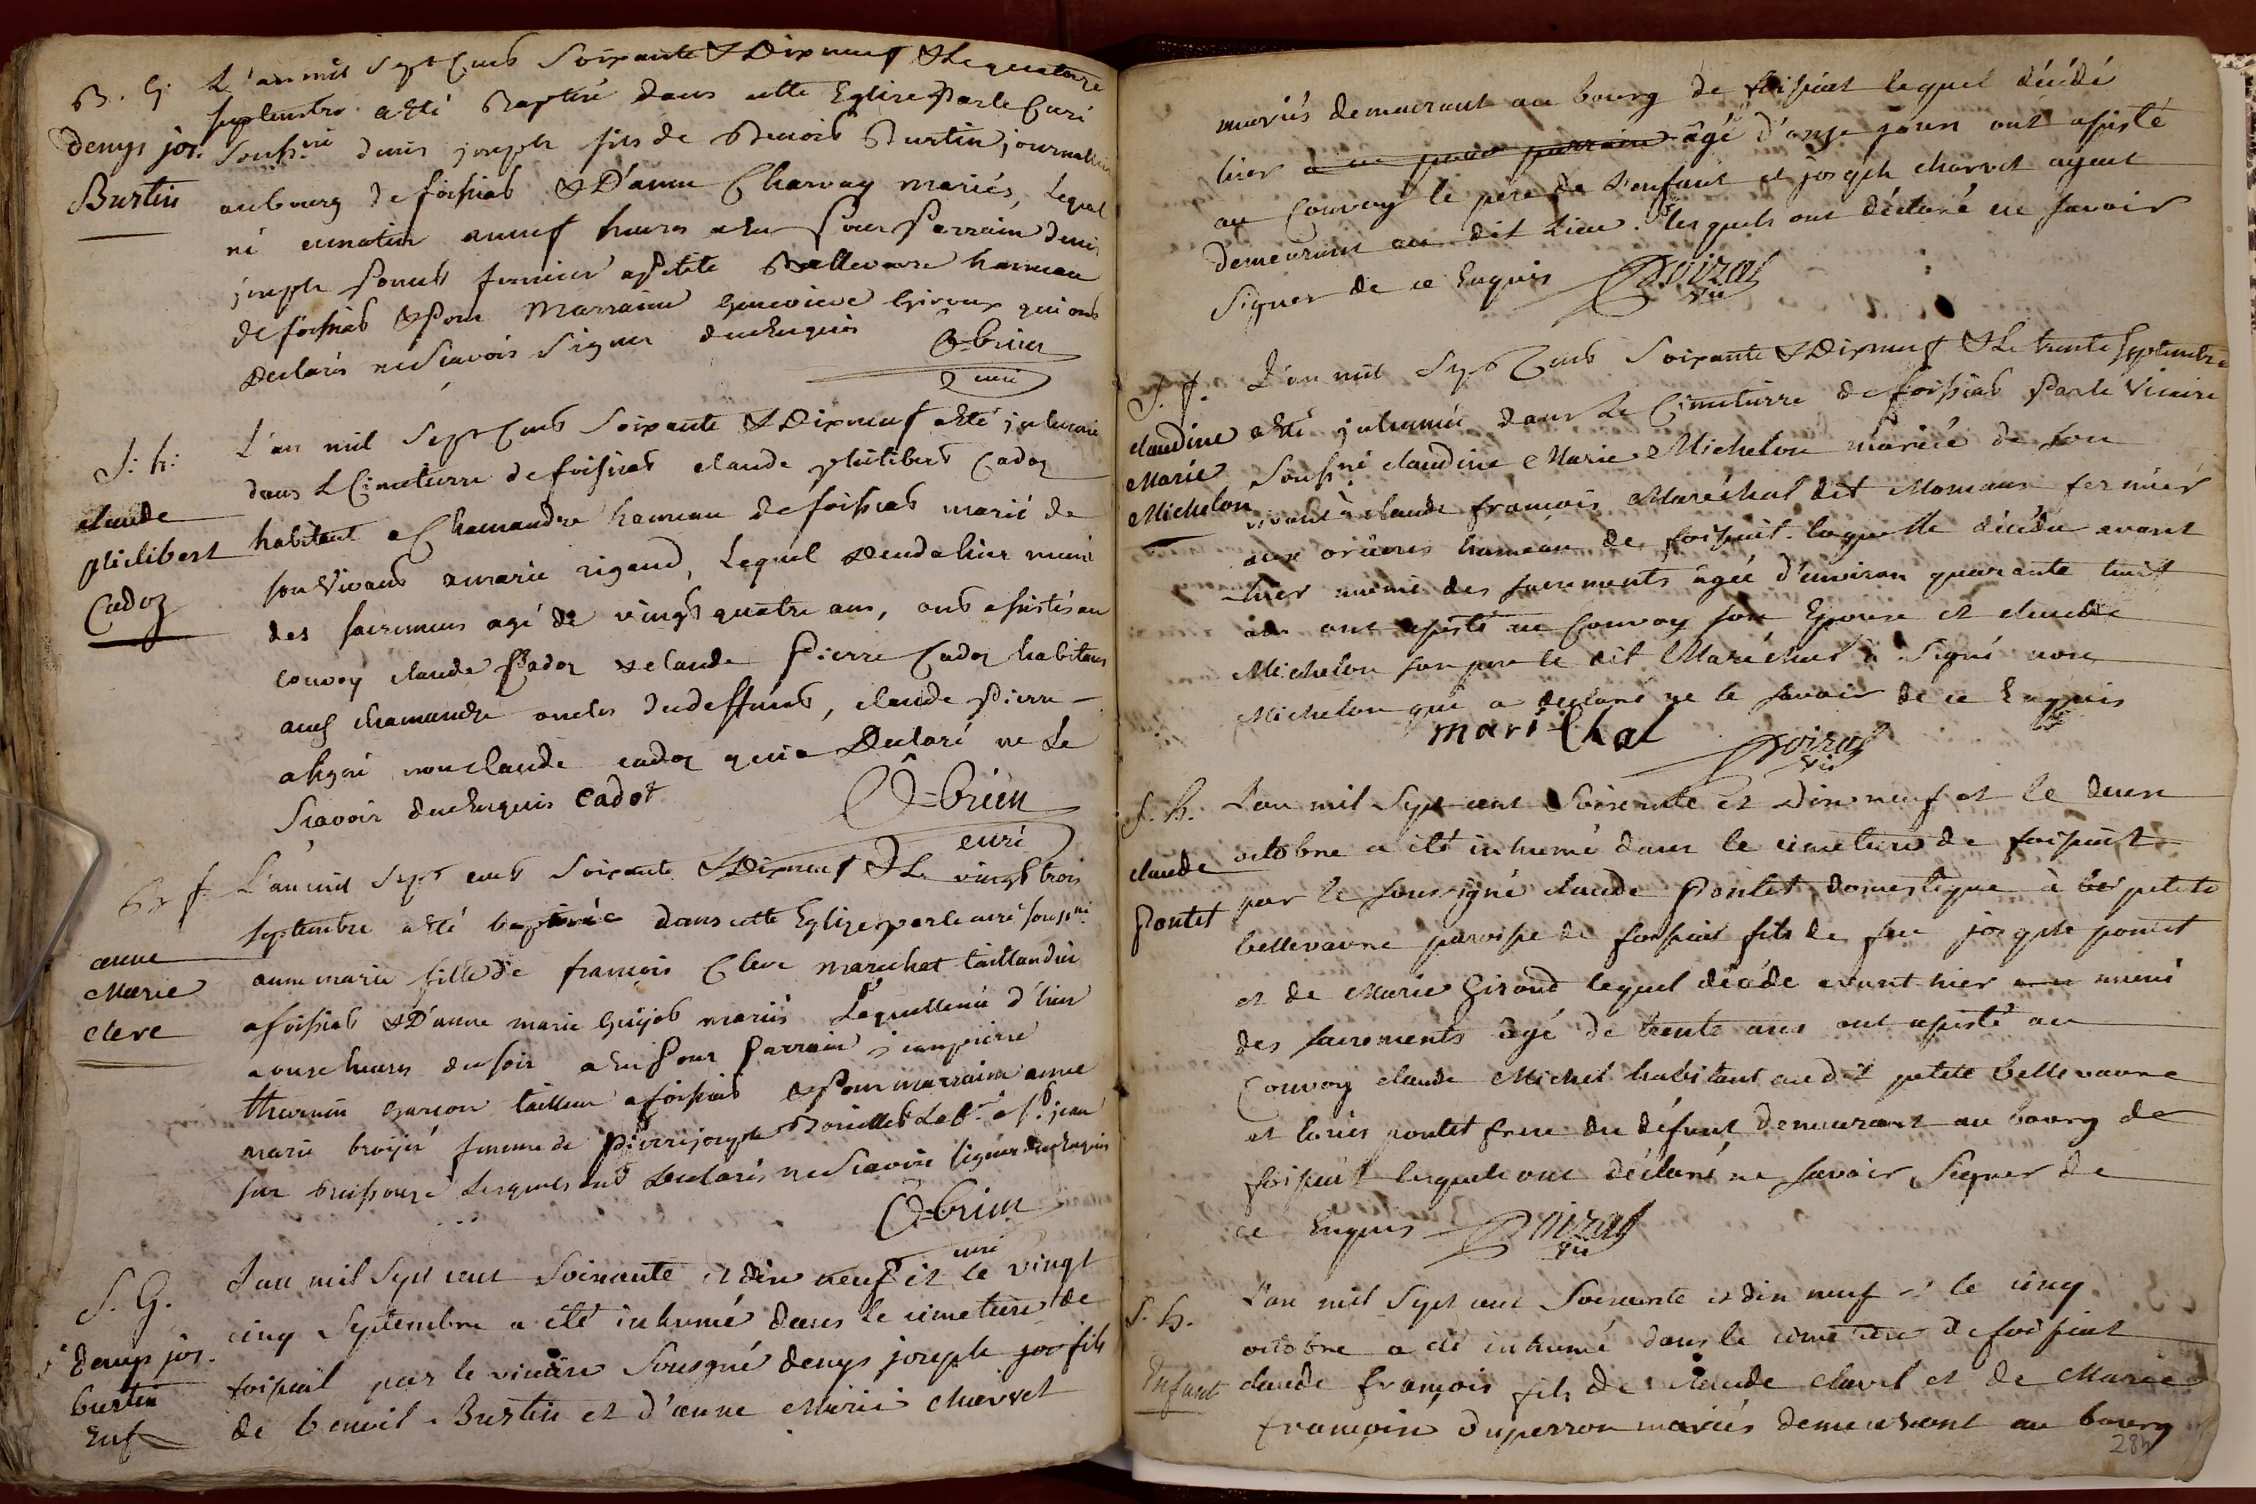 B. G.
denys jos.
Burtin
L'an mil Sept Cens Soixante & Dix neuf & Le quatorze
septembre a Eté Baptisé dans cette Eglise Par le Curé
Souss.né denis joseph fils de Benois Burtin journalier
au bourg de foissiat & D'anne Charvay mariés, Lequel
né ce matin a neuf heures a Eu Pour Parrain denis
joseph Ponct fermier a Petite Bellevavre hameau
de foissiat & Pour Marraine Genevieve Giroux qui ont
Declarés ne Scavoir Signer de ce Enquis O-brien
Curé
S. h.
claude
philibert
Cadoz
L'an mil Sept Cens Soixante & Dix neuf a Eté inhumé
dans Le Cimetierre de foissiat claude philibert Cadoz
habitant a Chamandre hameau de foissiat marié de
son Vivant a marie rigaud, Lequel deceda hier muni
des sacremens agé de vingt quatre ans, ont assistés au
convoy claude Cadoz & claude Pierre Cadoz habitans
aud chamandre oncles du deffunt, claude Pierre
a signé non claude cadoz qui a Declaré ne Le
Scavoir de ce Enquis Cadot O-brien
curé
B. f.
anne
Marie
Clerc
L'an mil Sept cens Soixante & Dix neuf & Le vingt trois
septembre a Eté baptisée dans cette Eglise par le curé souss.né
anne marie fille de françois Clerc marechal taillandier
a foissiat & D'anne marie Guijot mariés Laquelle née d'hier
a onze heures du soir a Eu Pour Parrain jean pierre
thevenin garçon tailleur a foissiat & Pour marraine anne
marie broyer femme de Pierre joseph Bouillet Lab.r a S.t jean
sur Reissouze Lesquels ont Declarés ne Scavoir signer de ce Enquis
O-brien
curé
S. G.
denys jos.
burtin
Enf
L'an mil Sept cent Soixante et dix neuf et le vingt
cinq Septembre a été inhumé dans le cimetiere de
foissiat par le vicaire Sousigné denys joseph fils
de benoit Burtin et d'anne Marie Charvet
mariés demeurant au bourg de foissiat lequel décédé
hier âgé d'onze jours ont assisté
au Convoy le père de l'enfant et joseph charvet ayeul
demeurant au dit Lieu. lesquels ont déclaré ne savoir
Signer de ce Enquis Poizat
Vic
S. f.
claudine
Marie
Michelon
L'an mil Sept Cens Soixante & Dix neuf & Le trente septembre
a Eté inhumée dans Le Cimetierre de foissiat Par le Vicaire
Souss.né claudine Marie Michelon mariée de son
vivant à claude françois Maréchal dit Momans fermier
aux oriores hameau de foissiat laquelle décéda avant
hier munie des sacrements âgée d'environ quarante huit
ans ont assisté au Convoy son Epoux et claude
Michelon son pere le dit Maréchal a Signé non
Michelon qui a declaré ne le savoir de ce Enquis
maréChal Poizat
Vic
S. h.
claude
Pontet
L'an mil Sept cent Soixante et Dix neuf et le deux
octobre a été inhumé dans le cimetiere de foissiat
par le soussigné claude Pontet domestique à petite
bellevavre paroisse de foissiat fils de feu joseph pontet
et de Marie Giroud lequel décéde avant hier muni
des sacrements âgé de trente ans ont assisté au
Convoy claude Michel habitant au dit petite bellevavre
et louis pontet frere du défunt demeurant au bourg de
foissiat lesquels ont déclaré ne savoir Signer de
ce Enquis Poizat
Vic
S. h.
Enfant
L'an mil Sept cent Soixante et dix neuf et le cinq
octobre a été inhumé dans le cimetiere de foissiat
claude françois fils de claude clavel et de Marie
françoise Duperron mariés demeurant au bourg